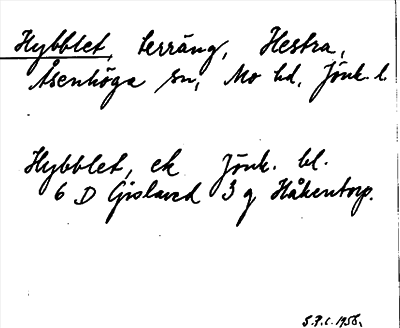 Hybblet, terräng, Hestra,
Åsenhöga sn, Mo hd, Jönk. l.
Hybblet, ek Jönk. bl.
6 D Gislaved 3 g Håkentorp.
S.F.C. 1956.